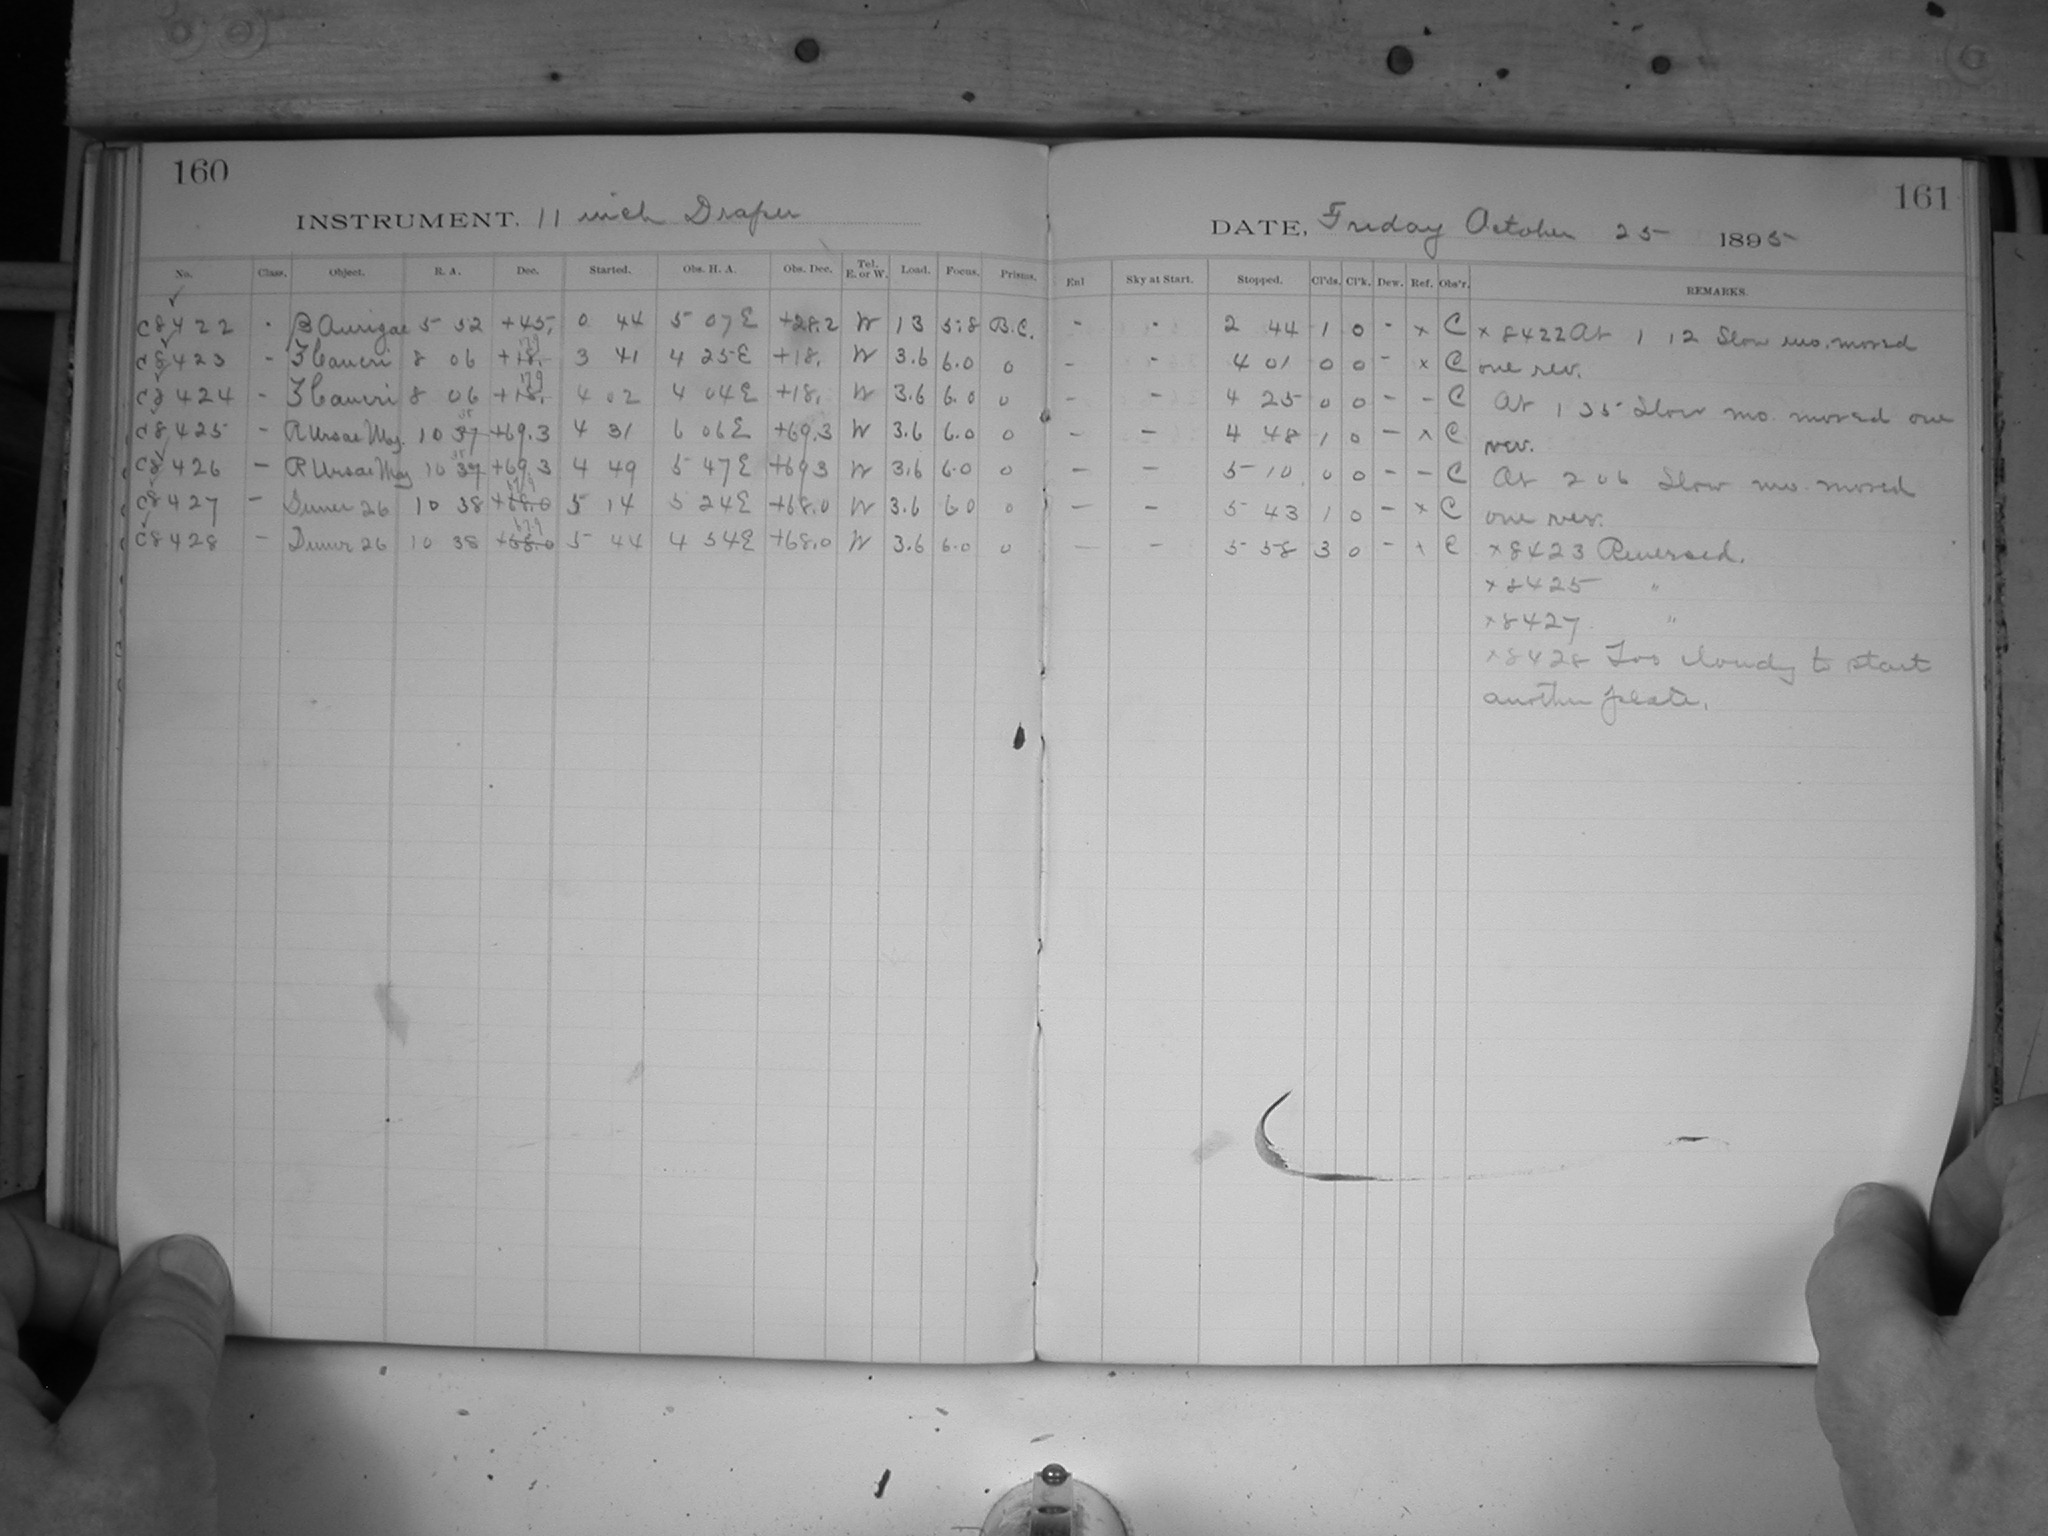 160
161
INSTRUMENT, 11 inch Draper
DATE, Friday October 25 1895
No. Class. Object. R. A. Dec. Started. Obs. H. A. Obs. Dec. Tel. E. or W. Load. Focus. Prisms. Enl Sky at Start. Stopped. Cl'ds. Cl'k. Dew. Ref. Obs'r. REMARKS.
C8422 - β Aurigae 5 52 +45, 0 44 5 07 E +28.2 W 13 5.8 B.C. - - 2 44 1 0 - x C x 8422 At 1 12 Slow mo. moved
C8423 - Cancri 8 06 +18. 179 3 41 4 25 E +18. W 3.6 6.0 0 - - 4 01 0 0 - x C one rev.
C8424 - Cancri 8 06 +18. 179 4 02 4 04 E +18. W 3.6 6.0 0 - - 4 25 0 0 - - C At 1 35 Slow mo. moved one
C8425 - R Ursae Maj. 10 37 +69.3 4 31 6 06 E +69.3 W 3.6 6.0 0 - - 4 48 1 0 - x C rev.
C8426 - R Ursae Maj 10 37 +69.3 4 49 5 47 E +69.3 W 3.6 6.0 0 - - 5 10 0 0 - - C At 2 06 Slow mo. moved
C8427 - Duner 26 10 38 +68.0 679 5 14 5 24 E +68.0 W 3.6 6.0 0 - - 5 43 1 0 - x C one rev.
C8428 - Duner 26 10 38 +68.0 679 5 44 4 54 E +68.0 W 3.6 6.0 0 - - 5 58 3 0 - x C x 8423 Reversed.
x 8425 "
x 8427 "
x 8428 Too cloudy to start
another plate.